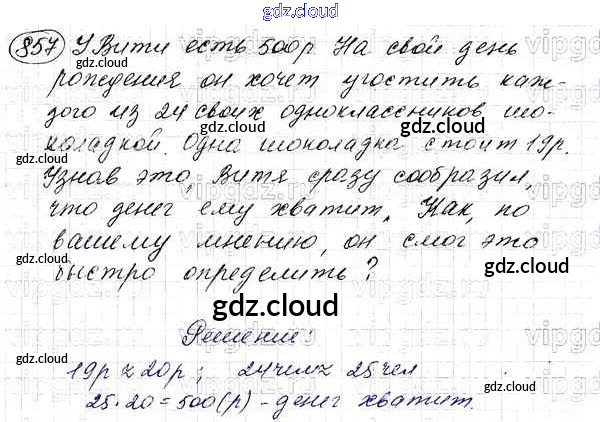 gdz.cloud
857 У Вити есть 500р. На свой день
рождения он хочет угостить каж-
дого из 24 своих одноклассников шо-
коладкой. Одна шоколадка стоит 19р.
Узнав это, Витя сразу сообразил,
что денег ему хватит. Как, по
вашему мнению, он смог это
быстро определить?
gdz.cloud
Решение:
19р ≈ 20р; 24чел ≈ 25чел
25·20=500(р) - денег хватит.